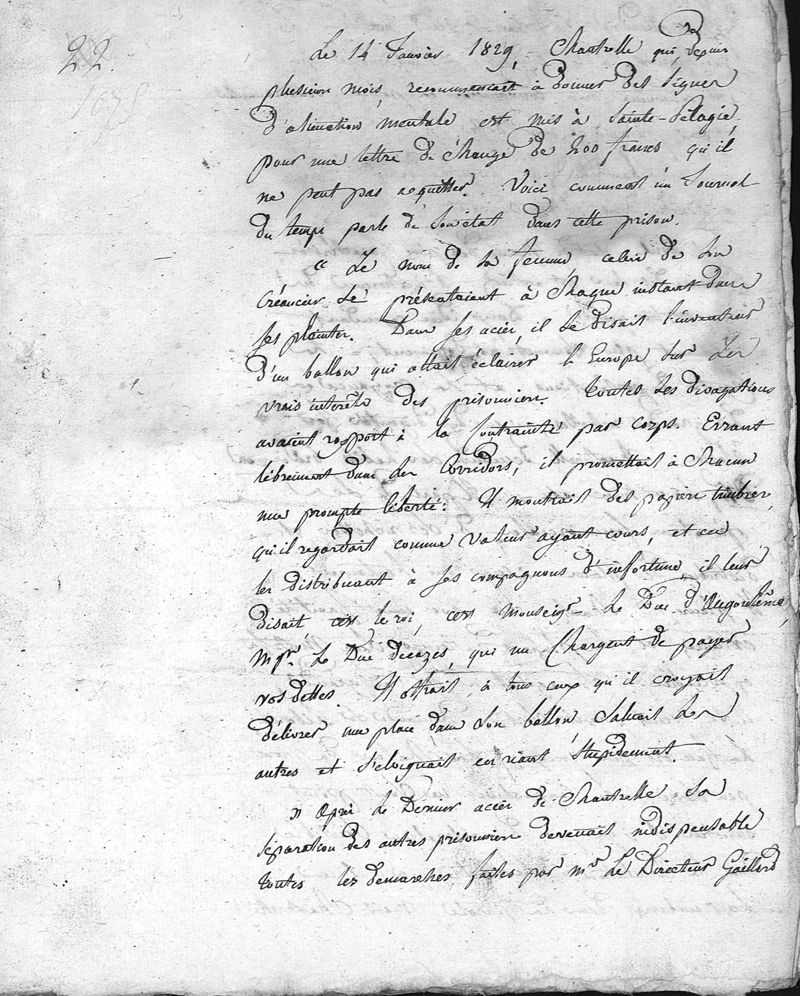 22.
1675
Le 14 Janvier 1829, Chantrelle qui depuis
plusieurs mois, recommençait à donner des signes
d'aliénation mentale est mis à Sainte-Pélagie
pour une lettre de Change de 200 francs qu'il
ne peut pas acquitter. Voici comment un Journal
du temps parle de son état dans cette prison.
« Le nom de sa femme, celui de son
Créancier se présentaient à Chaque instant dans
ses plaintes. Dans ses accès, il se disait l'inventeur
d'un ballon qui allait éclairer l'Europe sur les
vrais intérêts des prisonniers. toutes ses divagations
avaient rapport à la Contrainte par corps. Errant
librement dans les Corridors, il promettait à Chacun
une prompte liberté: Il montrait des papiers timbrés,
qu'il regardait comme valeur ayant cours, et en
les distribuant à ses compagnons d'infortune, il leur
disait, c'est le roi, c'est Monseigr. le Duc d'Angoulême,
Mgr. le Duc decazes, qui me Chargent de payer
vos dettes. Il offrait, à tous ceux qu'il croyait
délivrer une place dans son ballon, Saluait les
autres et s'éloignait en riant Stupidement.
» Après le dernier accès de Chantrelle sa
séparation des autres prisonniers devenait indispensable
toutes les demarches faites par mr. le Directeur Gaillard